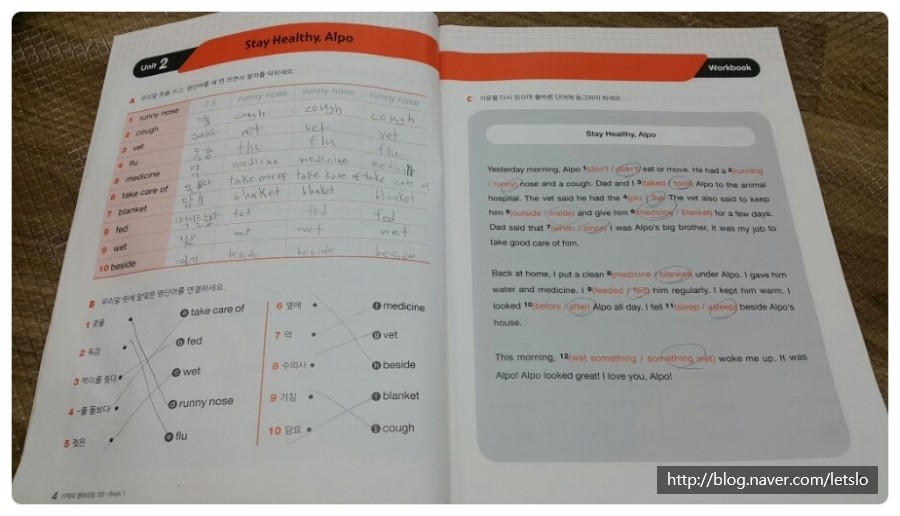 Unit 2
Stay Healthy, Alpo
A 우리말 뜻을 쓰고, 영단어를 세 번 쓰면서 철자를 익히세요.
1 runny nose 콧물 runny nose runny nose runny nose
2 cough cough cough cough
3 vet 수의사 vet vet vet
4 flu 독감 flu flu flu
5 medicine 약 medicine medicine medicine
6 take care of 돌보다 take care of take care of take care of
7 blanket 담요 blanket blanket blanket
8 fed fed fed fed
9 wet 젖은 wet wet wet
10 beside 옆에 beside beside beside
B 우리말 뜻에 알맞은 영단어를 연결하세요.
1 콧물 ⓐ take care of
2 독감 ⓑ fed
3 먹이를 줬다 ⓒ wet
4 ~를 돌보다 ⓓ runny nose
5 젖은 ⓔ flu
6 옆에 ⓕ medicine
7 약 ⓖ vet
8 수의사 ⓗ beside
9 기침 ⓘ blanket
10 담요 ⓙ cough
4
Book 1
Workbook
C 지문을 다시 읽으며 올바른 단어에 동그라미 하세요.
Stay Healthy, Alpo
Yesterday morning, Alpo 1(don't / didn't) eat or move. He had a 2(running
/ runny) nose and a cough. Dad and I 3(taked / took) Alpo to the animal
hospital. The vet said he had the 4(plu / flu). The vet also said to keep
him 5(outside / inside) and give him 6(medicine / blanket) for a few days.
Dad said that 7(when / since) I was Alpo's big brother, it was my job to
take good care of him.
Back at home, I put a clean 8(medicine / blanket) under Alpo. I gave him
water and medicine. I 9(feeded / fed) him regularly. I kept him warm. I
looked 10(before / after) Alpo all day. I fell 11(sleep / asleep) beside Alpo's
house.
This morning, 12(wet something / something wet) woke me up. It was
Alpo! Alpo looked great! I love you, Alpo!
http://blog.naver.com/letslo